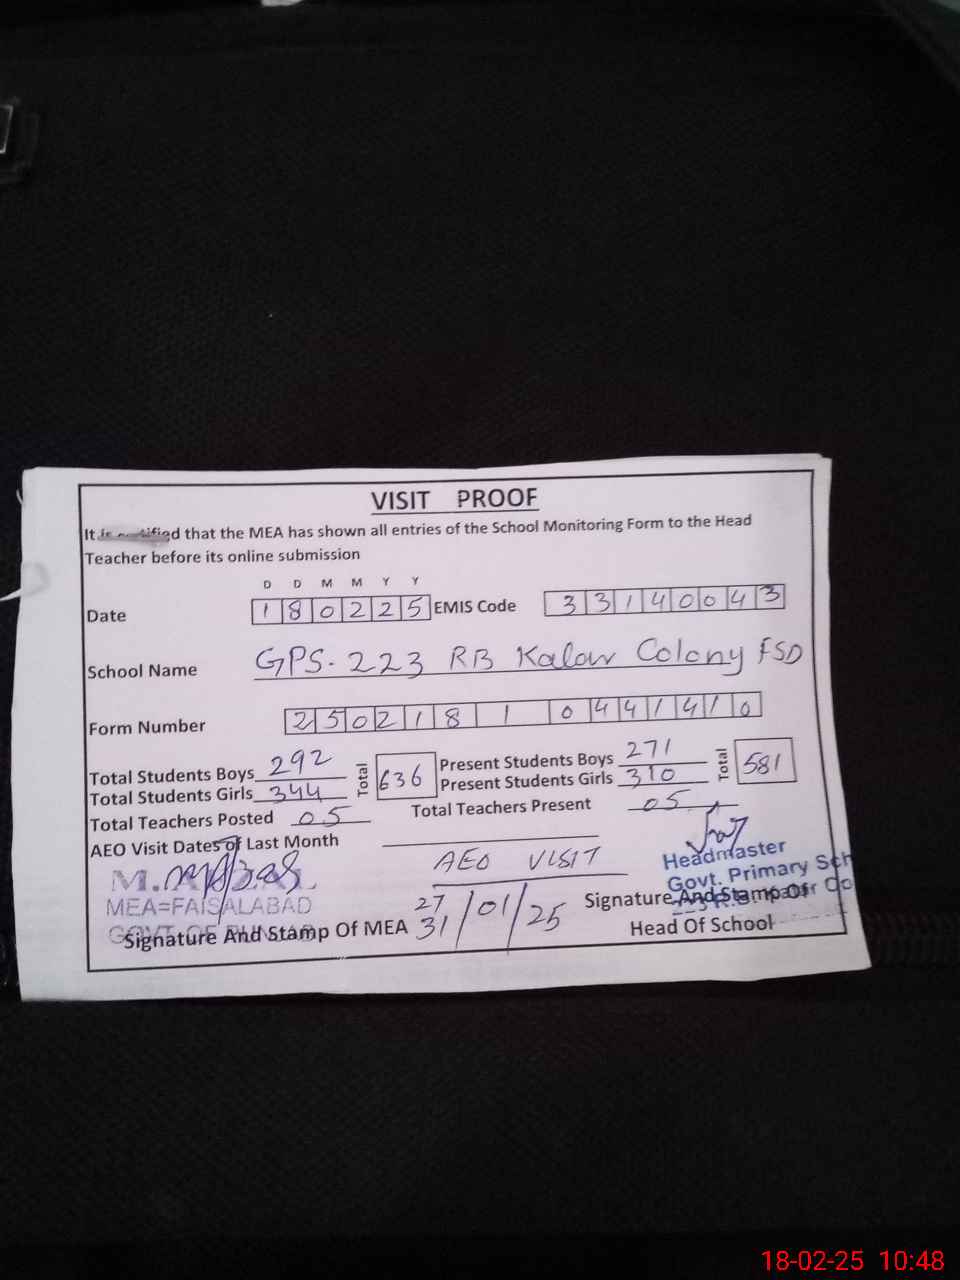 VISIT PROOF
It is notified that the MEA has shown all entries of the School Monitoring Form to the Head
Teacher before its online submission
D D M M Y Y
Date 180225 EMIS Code 33140043
School Name GPS. 223 RB Kalow Colony FSD
Form Number 250218 1 0441410
Total Students Boys 292 Total 636 Present Students Boys 271 Total 581
Total Students Girls 344 Present Students Girls 310
Total Teachers Posted 05 Total Teachers Present 05
AEO Visit Dates of Last Month
AEO VISIT
27
31/01/25
M.
MEA=FAISALABAD
Signature And Stamp Of MEA
Headmaster
Govt. Primary Sch
Signature And Stamp Of
Head Of School
18-02-25 10:48